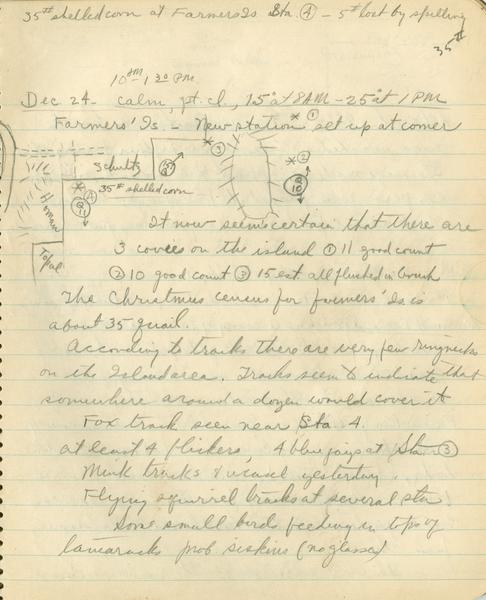 35# shelled corn at Farmers Is Sta. ④ - 5# lost by spilling
35#
10 AM - 1 30 PM
Dec 24 - calm, pt. cl., 15° at 8 AM - 25° at 1 PM
Farmers' Is - New station * ① set up at corner
* ③
* ②
Schultz
* ④
35# shelled corn
Q 11
Q 10
Homan
Topal
It now seems certain that there are
3 covies on the island ① 11 good count
② 10 good count ③ 15 est. all flushed in brush
The Christmas census for farmers' Is is
about 35 quail.
According to tracks there are very few ringnecks
on the Island area. Tracks seem to indicate that
somewhere around a dozen would cover it
Fox track seen near Sta. 4.
at least 4 flickers, 4 blue jays at Sta. ③
Mink tracks & weasel yesterday.
Flying squirrel tracks at several sta.
Some small birds feeding in tops of
tamaracks prob siskins (no glasses)